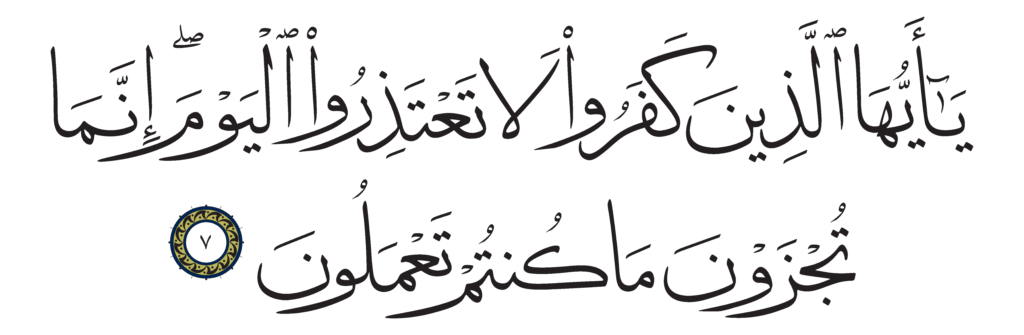 يَٰٓأَيُّهَا ٱلَّذِينَ كَفَرُوا۟ لَا تَعْتَذِرُوا۟ ٱلْيَوْمَ ۖ إِنَّمَا
تُجْزَوْنَ مَا كُنتُمْ تَعْمَلُونَ ٧